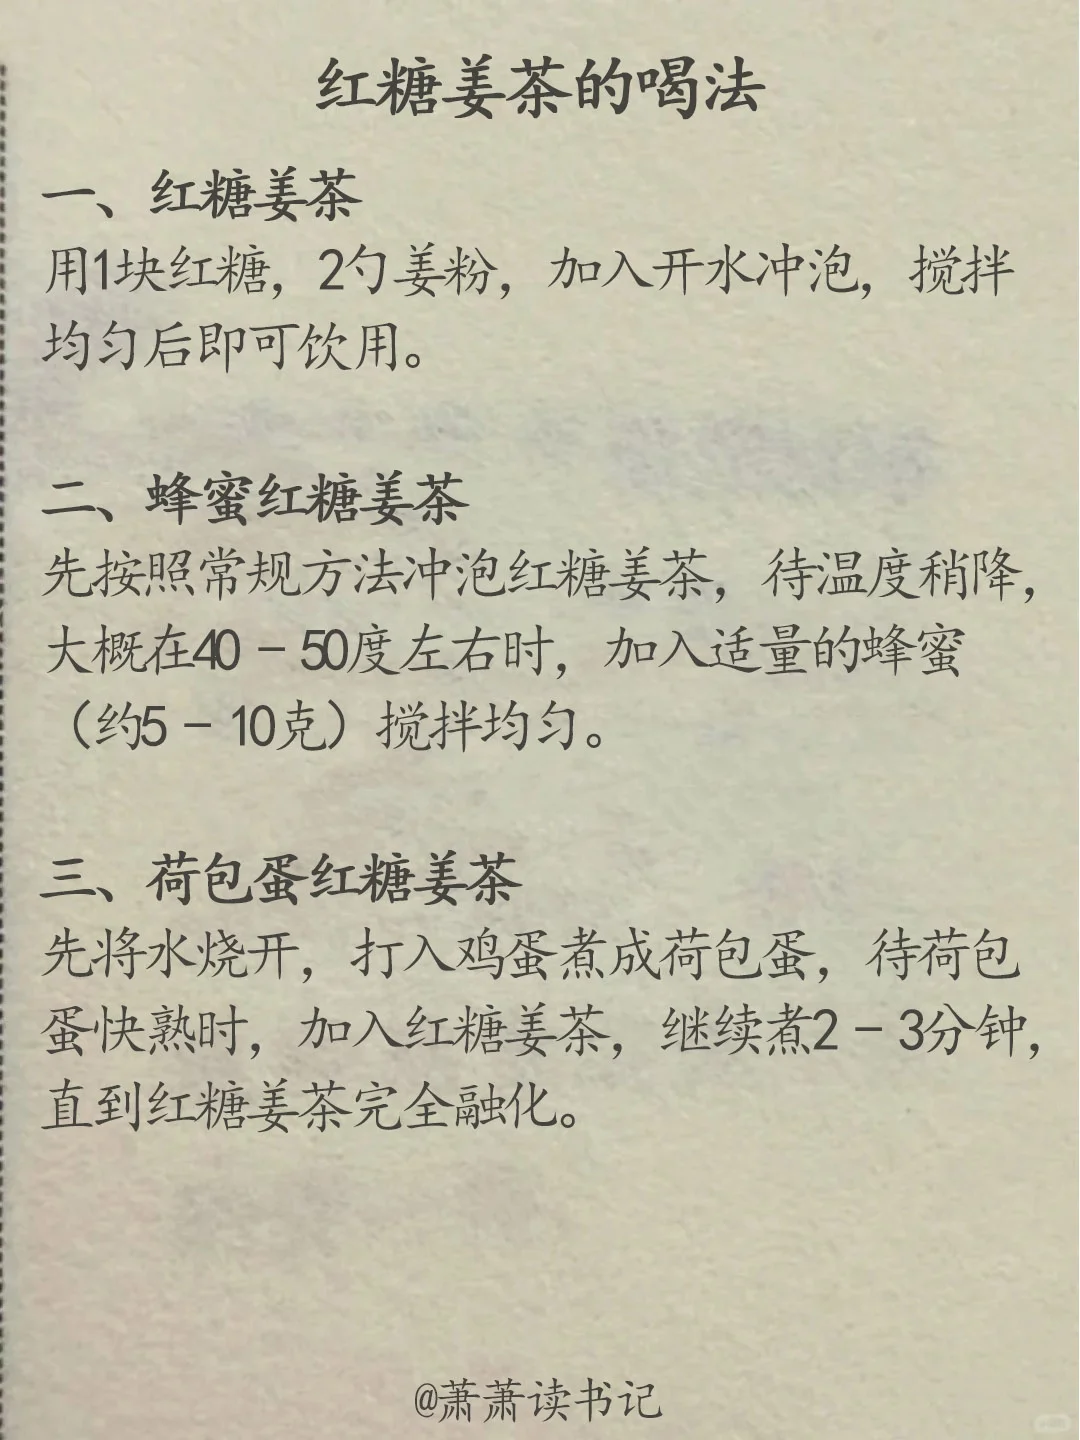 红糖姜茶的喝法
一、红糖姜茶
用1块红糖，2勺姜粉，加入开水冲泡，搅拌
均匀后即可饮用。
二、蜂蜜红糖姜茶
先按照常规方法冲泡红糖姜茶，待温度稍降，
大概在40－50度左右时，加入适量的蜂蜜
（约5－10克）搅拌均匀。
三、荷包蛋红糖姜茶
先将水烧开，打入鸡蛋煮成荷包蛋，待荷包
蛋快熟时，加入红糖姜茶，继续煮2－3分钟，
直到红糖姜茶完全融化。
@萧萧读书记